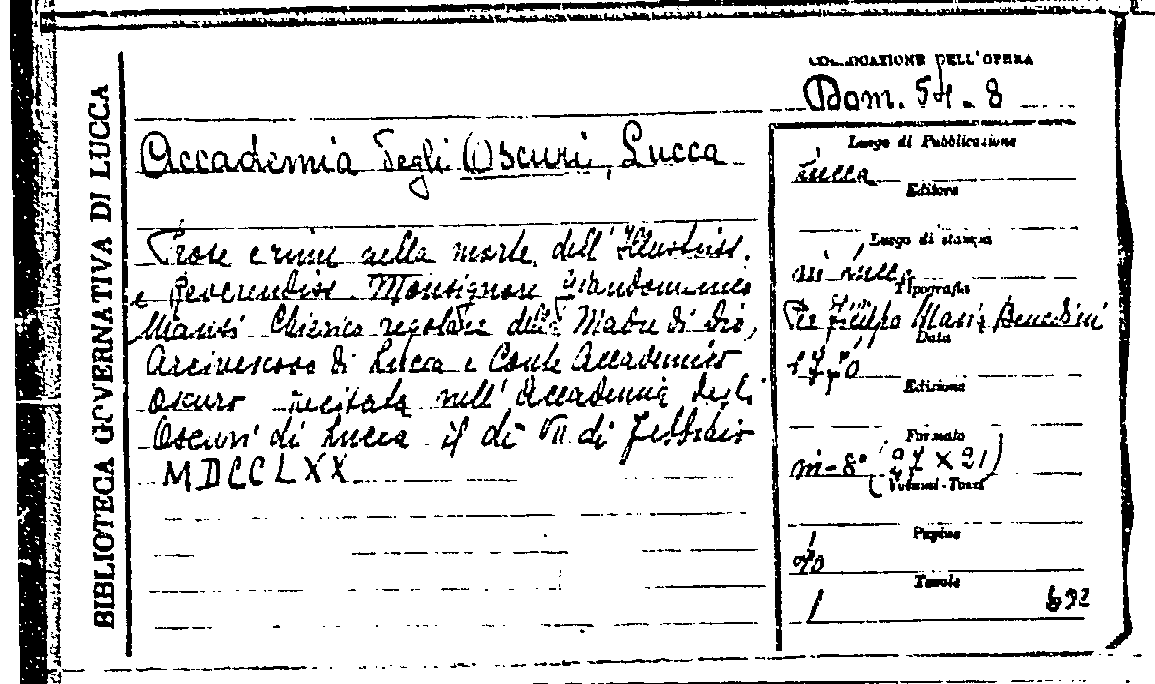 BIBLIOTECA GOVERNATIVA DI LUCCA
COLLOCAZIONE DELL'OPERA
Dom. 54. 8
Accademia degli Oscuri, Lucca
Prose e rime nella morte dell'Illustriss.
e Reverendiss Monsignore Giandomenico
Mansi Chierico regolare della Madre di Dio,
Arcivescovo di Lucca e Conte Accademico
oscuro recitate nell'Accademia degli
Oscuri di Lucca il dì VII di Febbraio
MDCCLXX
Luogo di Pubblicazione
Lucca
Editore
Luogo di stampa
in Lucca
Tipografia
Per Filippo Maria Benedini
Data
1770
Edizione
Formato
in-8° ( X 21)
Volumi-Tomi
1
Pagine
70
Tavole
1
692